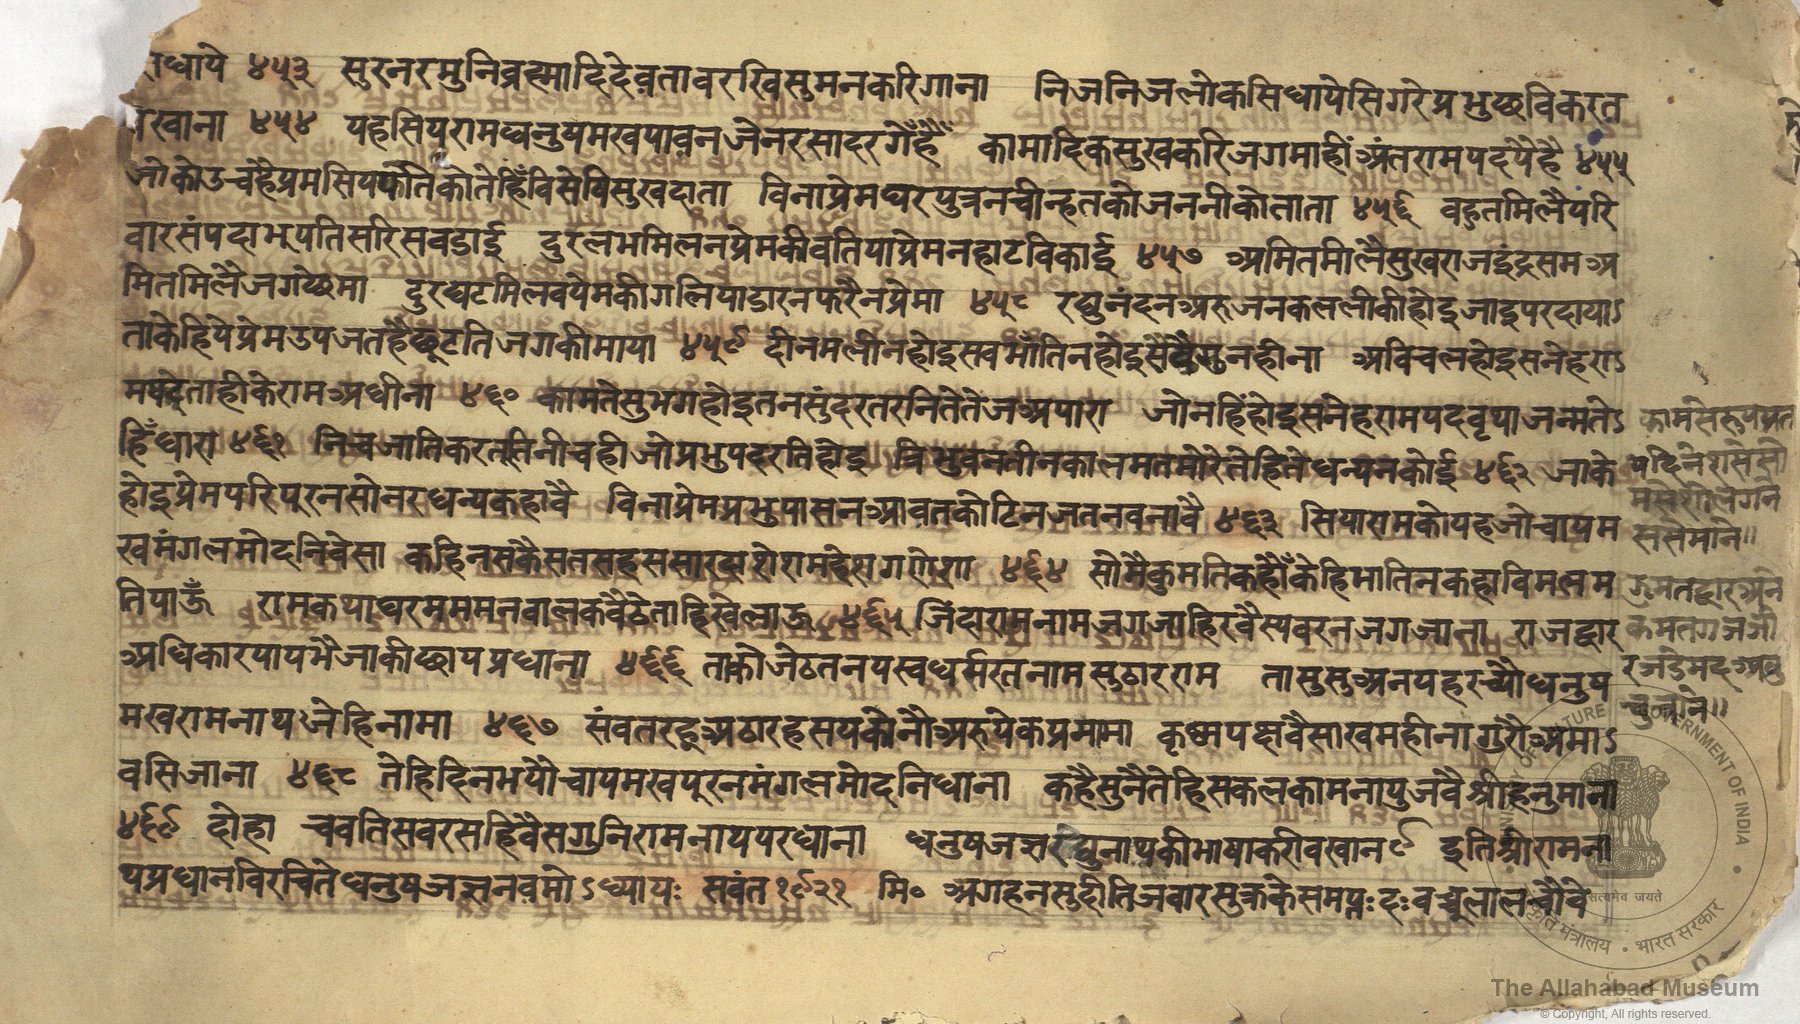 ाधाये ४५३ सुरनरमुनिव्रह्मादिदेव़तावरखिसुमनकरिगाना निजनिजलोकसिधायेसिगरेप्रभुछविकरत
वखाना ४५४ यहसियरामधनुषमखपाव़नजेनरसादरगेँहैं कामादिकसुखकरिजगमाहीँअंतरामपदपैहै ४५५
जोकोउचहैप्रमसियर्पतिकोतेहिँविसेषिसुखदाता विनाप्रेमघरपुत्रनचीन्हतकोजननीकोताता ४५६ वहुतमिलैपरि
वारसंपदाभुपतिसरिसवडाई दुरलभमिलनप्रेमकीवतियाप्रेमनहाटविकाई ४५७ अमितमीलैसुखराजइंद्रसमअ
मितमिलैजगछेमा दुरघटमिलवपेमकीगलियाडारनफरैनप्रेमा ४५८ रघुनंदनअरुजनकललीकीहोइजाइपरदायाऽ
ताकेहियेप्रेमउपजतहैछूटतिजगकीमाया ४५९ दीनमलीनहोइसवभाँतिनहोइसवैगुनहीना अविचलहोइसनेहराऽ
मपदताहीकेरामअधीना ४६० कामतेसुभगहोइतनसुंदरतरनितेतेजअपारा जोनहिंहोइसनेहरामपदवृथाजन्मतेऽ
हिँधारा ४६१ निचजातिकरततिनीचहीजोप्रभुपदरतिहोइ त्रिभुवनतीनकालमतमोरेतेहितेधन्यनकोई ४६२ जाके
होइप्रेमपरिपुरनसोनरधन्यकहावै विनाप्रेमप्रभुपासनआव़तकोटिनजतनवनावै ४६३ सियारामकोयहजोचापम
खमंगलमोदनिवेसा कहिनसकैसतसहससारदाशेरामहेशगणेशा ४६४ सोमैकुमतिकहौँकेहिमातिनकहाविमलम
तिपाऊँ रामकथाघरमममनवालकवैठेताहिखेलाऊ ४६५ जिंदारामनामजगजाहिरवैस्यवरनजगजाना राजद्वार
अधिकारयापभैजाकीछापप्रधाना ४६६ ताकोजेठतनयस्वधर्सरतनामसुठाररराम तासुसुअनयहरच्यौधनुष
मखरामनाथजेहिनामा ४६७ संवतरहूअठारहसयकोनौअरुयेकप्रमामा कृष्मपक्षवैसाखमहीनागुरौअमाऽ
वसिजाना ४६८ तेहिदिनभयौचापमखपुरनमंगलमोदनिधाना कहैसुनैतेहिसकलकामनापुजवैश्रीहनुमाना
४६९ दोहा चवतिसवरसहिवैसगुनिरामनाथपरधाना धनुषजज्ञरघुनाथकीभाषाकरीवखान९ इतिश्रीरामना
थप्रधानविरचितेधनुषजज्ञनव़मोऽध्यायः सवंत१९२१ मि० अगहनसुदीतिजवारसुक्रकेसमाप्तःदःवच्चुलालचौवे
कामसेरूपप्रत
ससेमाने॥
सत्यमेव जयते
MINISTRY OF CULTURE GOVERNMENT OF INDIA
संस्कृति मंत्रालय • भारत सरकार
The Allahabad Museum
© Copyright, All rights reserved.